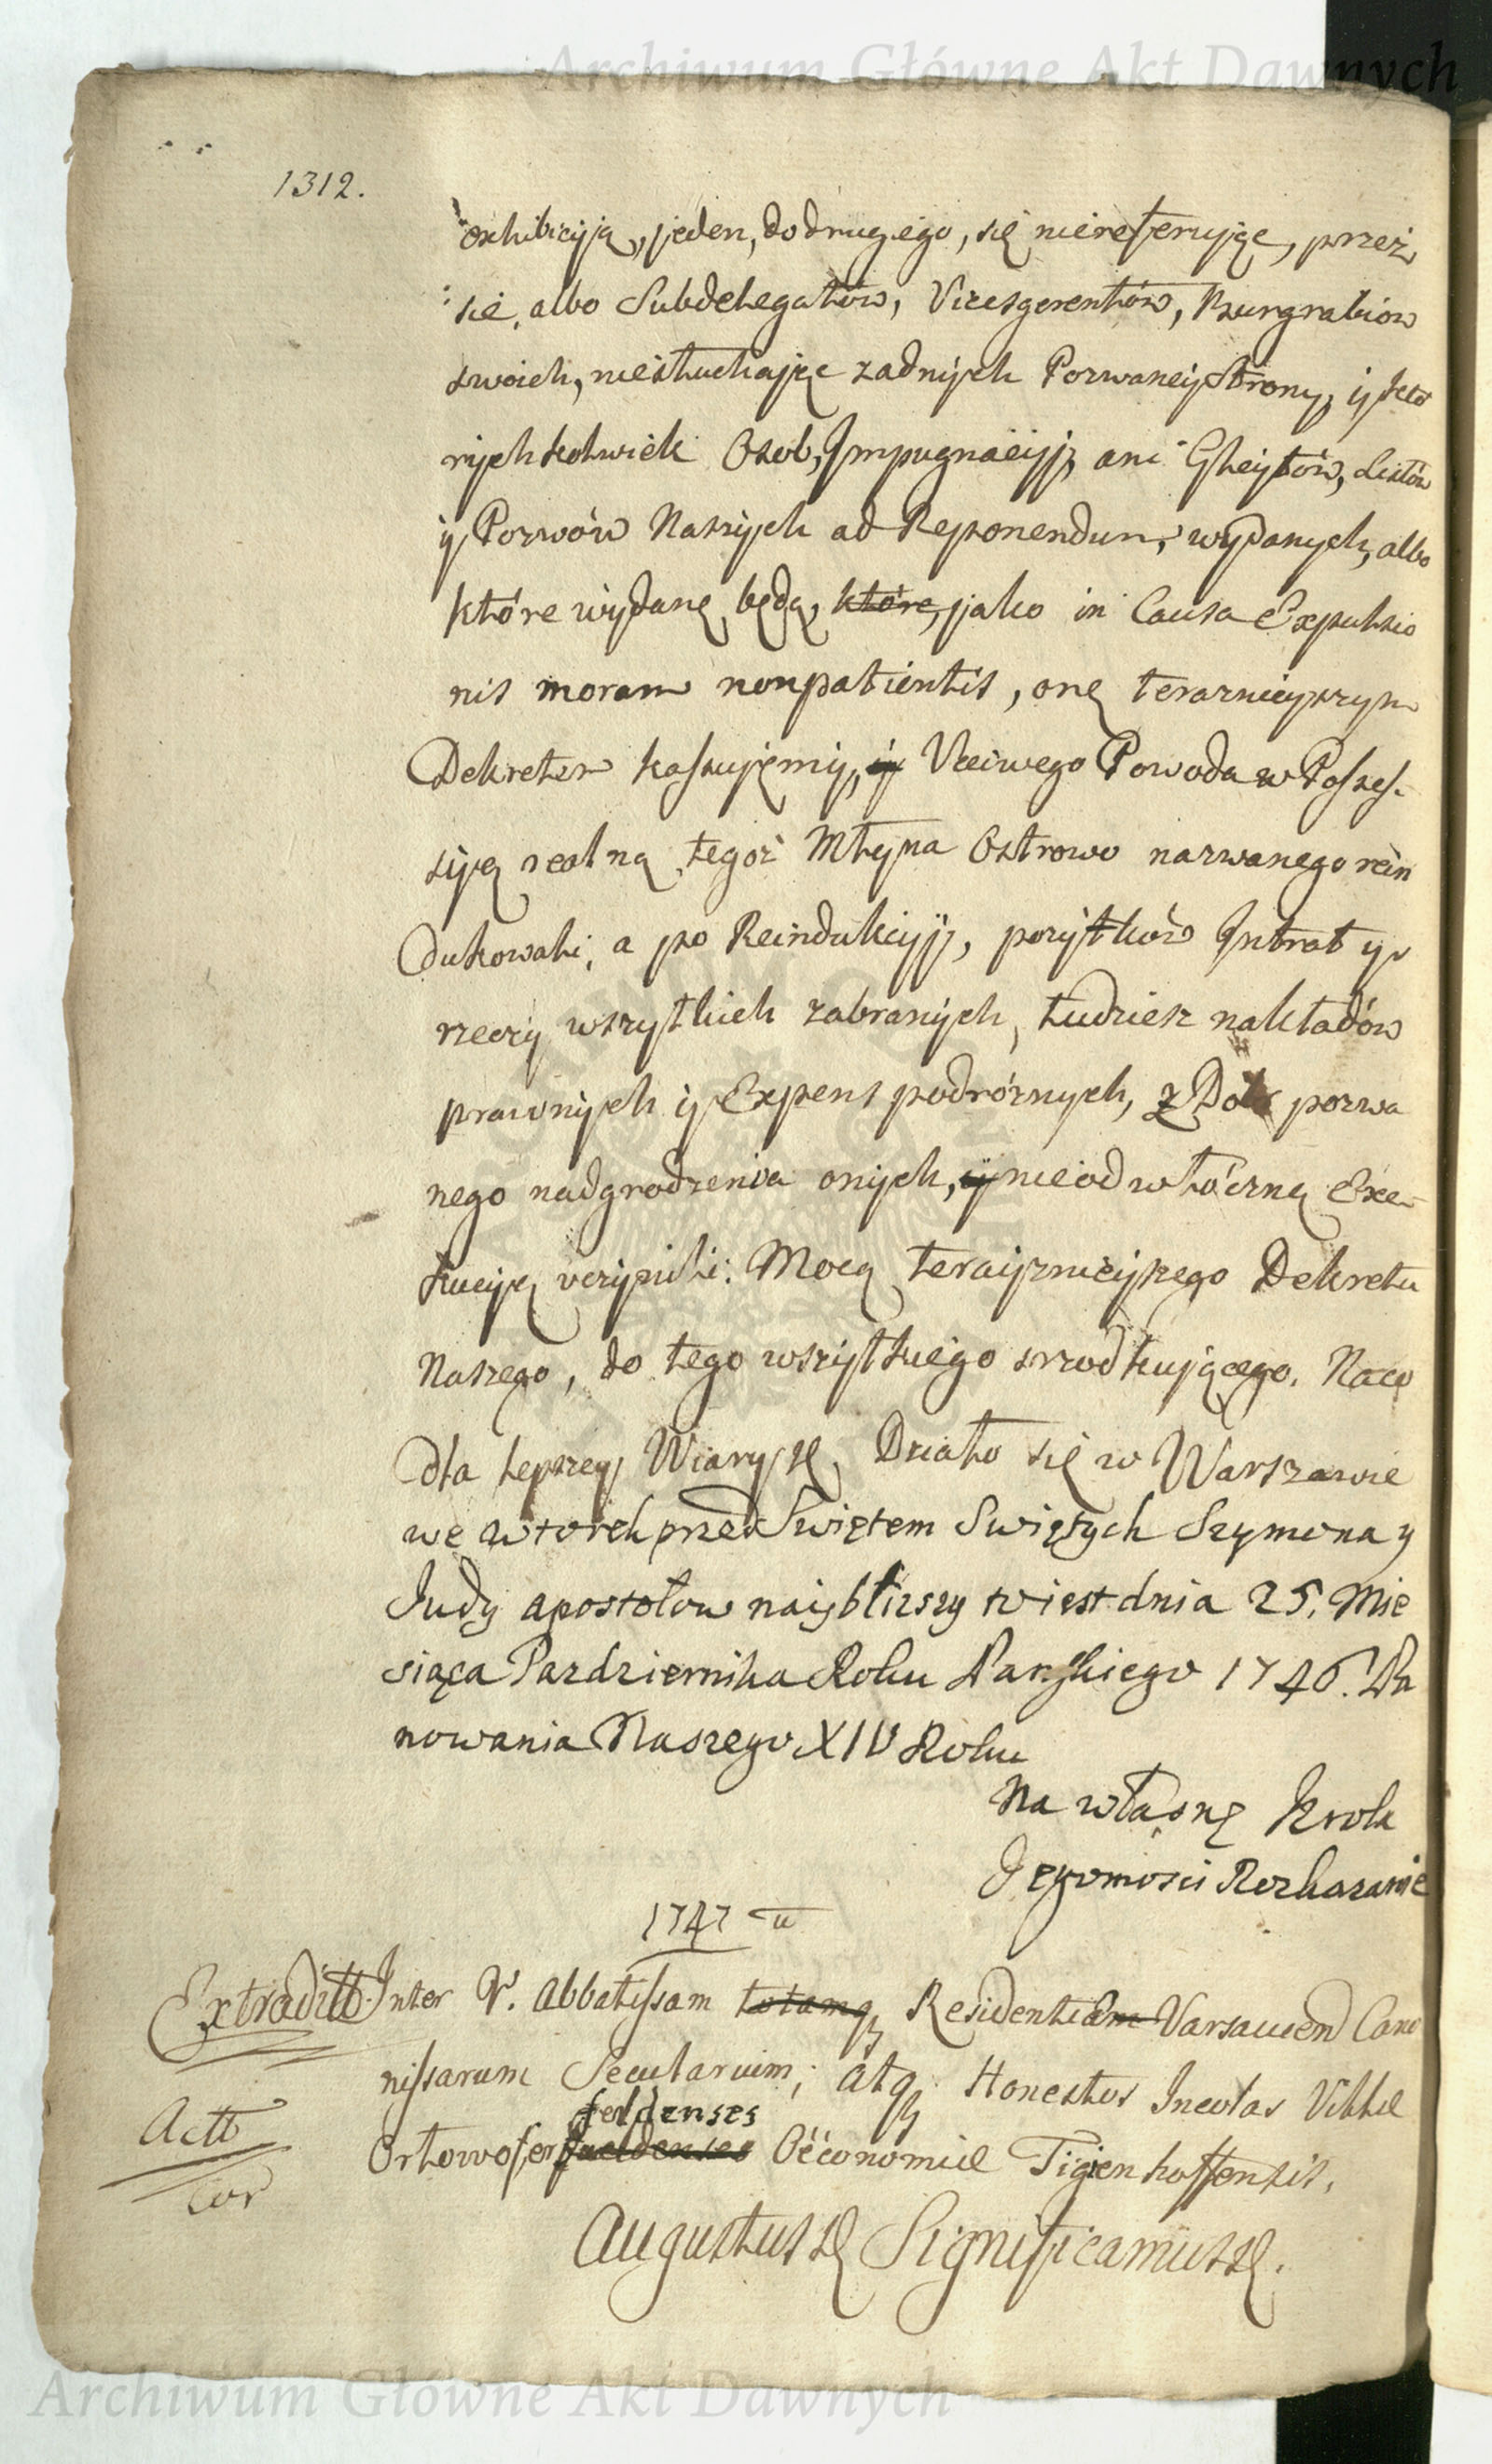 Archiwum Główne Akt Dawnych
1312.
exhibicyją, jeden, do drugiego, się niereferując, przez
się, albo Subdelegatów, Vicesgerentów, Burgrabiow
swoich, niesłuchając zadnych Pozwaney Strony, y któ
rychkolwiek Osob, Impugnacyi, ani Gleytów, Listów
y Pozwów Naszych ad Reponendum, wydanych, albo
które wydane będą, które, jako in Causa Expulsio
nis moram nonpatientis, onę terazniejszym
Dekretem kassujęmy, y Vcciwego Powoda w Posses-
syią realną tegoż Młyna Ostrowo nazwanego rein
dukowali, a po Reindukcyi, pożytków Intrat y
rzeczy wszytkich zabranych, tudziesz nakładów
prawnych y Expens podróżnych, z Dobr pozwa
nego nadgrodzenia onych, y nieodwłóczną Exe-
kucyię vczynili. Mocą teraiznieyszego Dekretu
Naszego, do tego wszytkiego srzodkującego. Na co
dla lepszey Wiary etc. Działo się w Warszawie
we wtorek przed Swiętem Swiętych Szymona y
Judy apostołow naybliszszy to iest dnia 25. Mie
siąca Pazdziernika Roku Panskiego 1746. Pa
nowania Naszego XIV Roku
Na własnę Krola
Jegomosci Rozkazanie
1747
Extraditt Inter V. Abbatissam totamq Residentiam Varsavien Cano
nissarum Secularium, atq Honestos Incolas Villæ
feldenses
Actt Orłowofer Oéconomiæ Tigenhoffensis,
Cor
Augustus etc Significamus etc.
Archiwum Główne Akt Dawnych